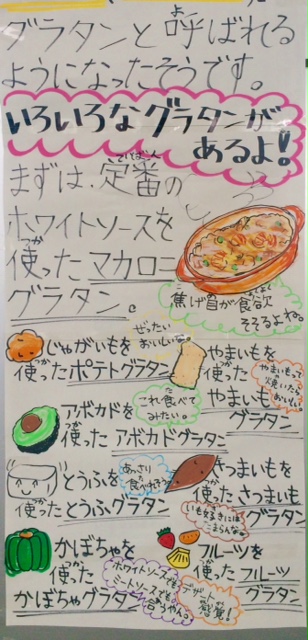 グラタンと呼ばれる
ようになったそうです。
いろいろなグラタンが
あるよ!
まずは、定番の
ホワイトソースを
使ったマカロニ
グラタン。
焦げ目が食欲
そそるよね。
じゃがいもを
使ったポテトグラタン
ぜったい
おいしい
やまいもを
使った
やまいも
グラタン
やまいもって
焼いても
おいしい
アボカドを
使った アボカドグラタン
これ食べて
みたい。
とうふを
使ったとうふグラタン
あっさり
食べれそう
さつまいもを
使った さつまいも
グラタン
いも好きには
こまらないね
かぼちゃを
使った
かぼちゃグラタン
ホワイトソースでも
ミートソースでも
合うやん。
フルーツを
使った フルーツ
グラタン
デザート
感覚!